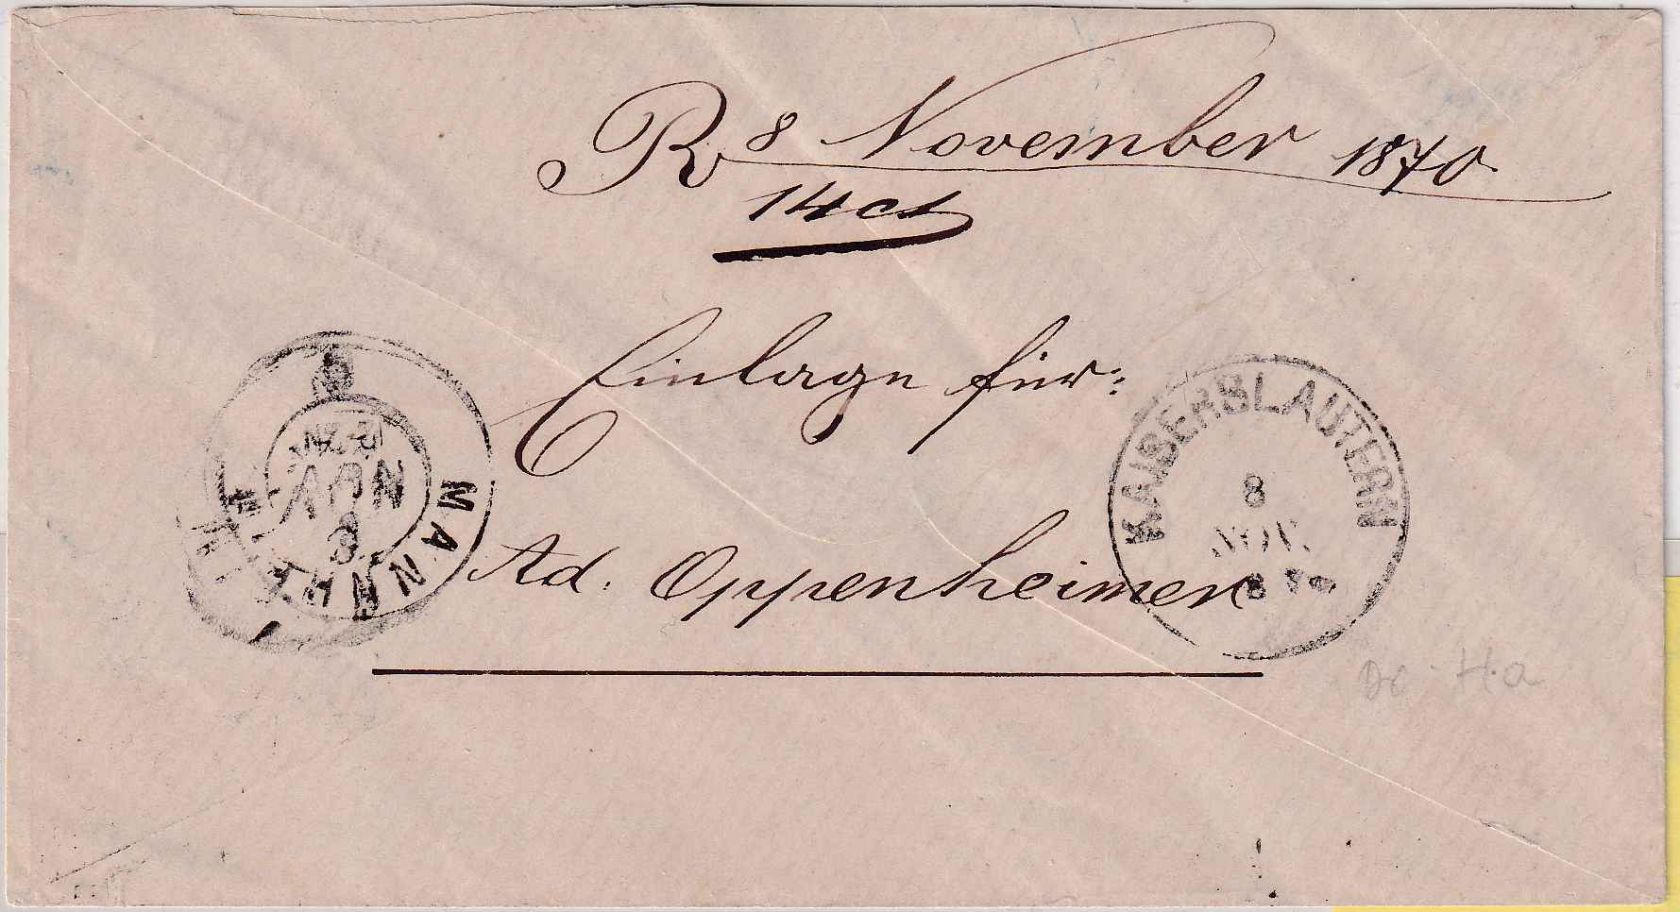 R 8 November 1870
14 ct
Einlage für:
Ad. Oppenheimer
MANNHEIM
8
NOV
KAISERSLAUTERN
8
NOV.